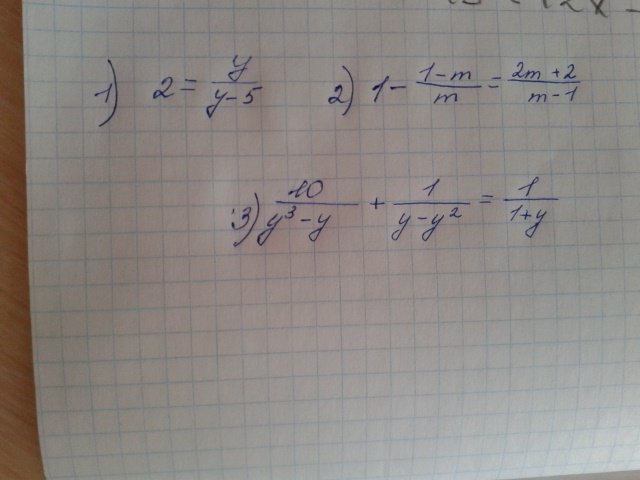 1) 2 = y/(y-5) 2) 1 - (1-m)/m = (2m+2)/(m-1)
3) 10/(y³-y) + 1/(y-y²) = 1/(1+y)